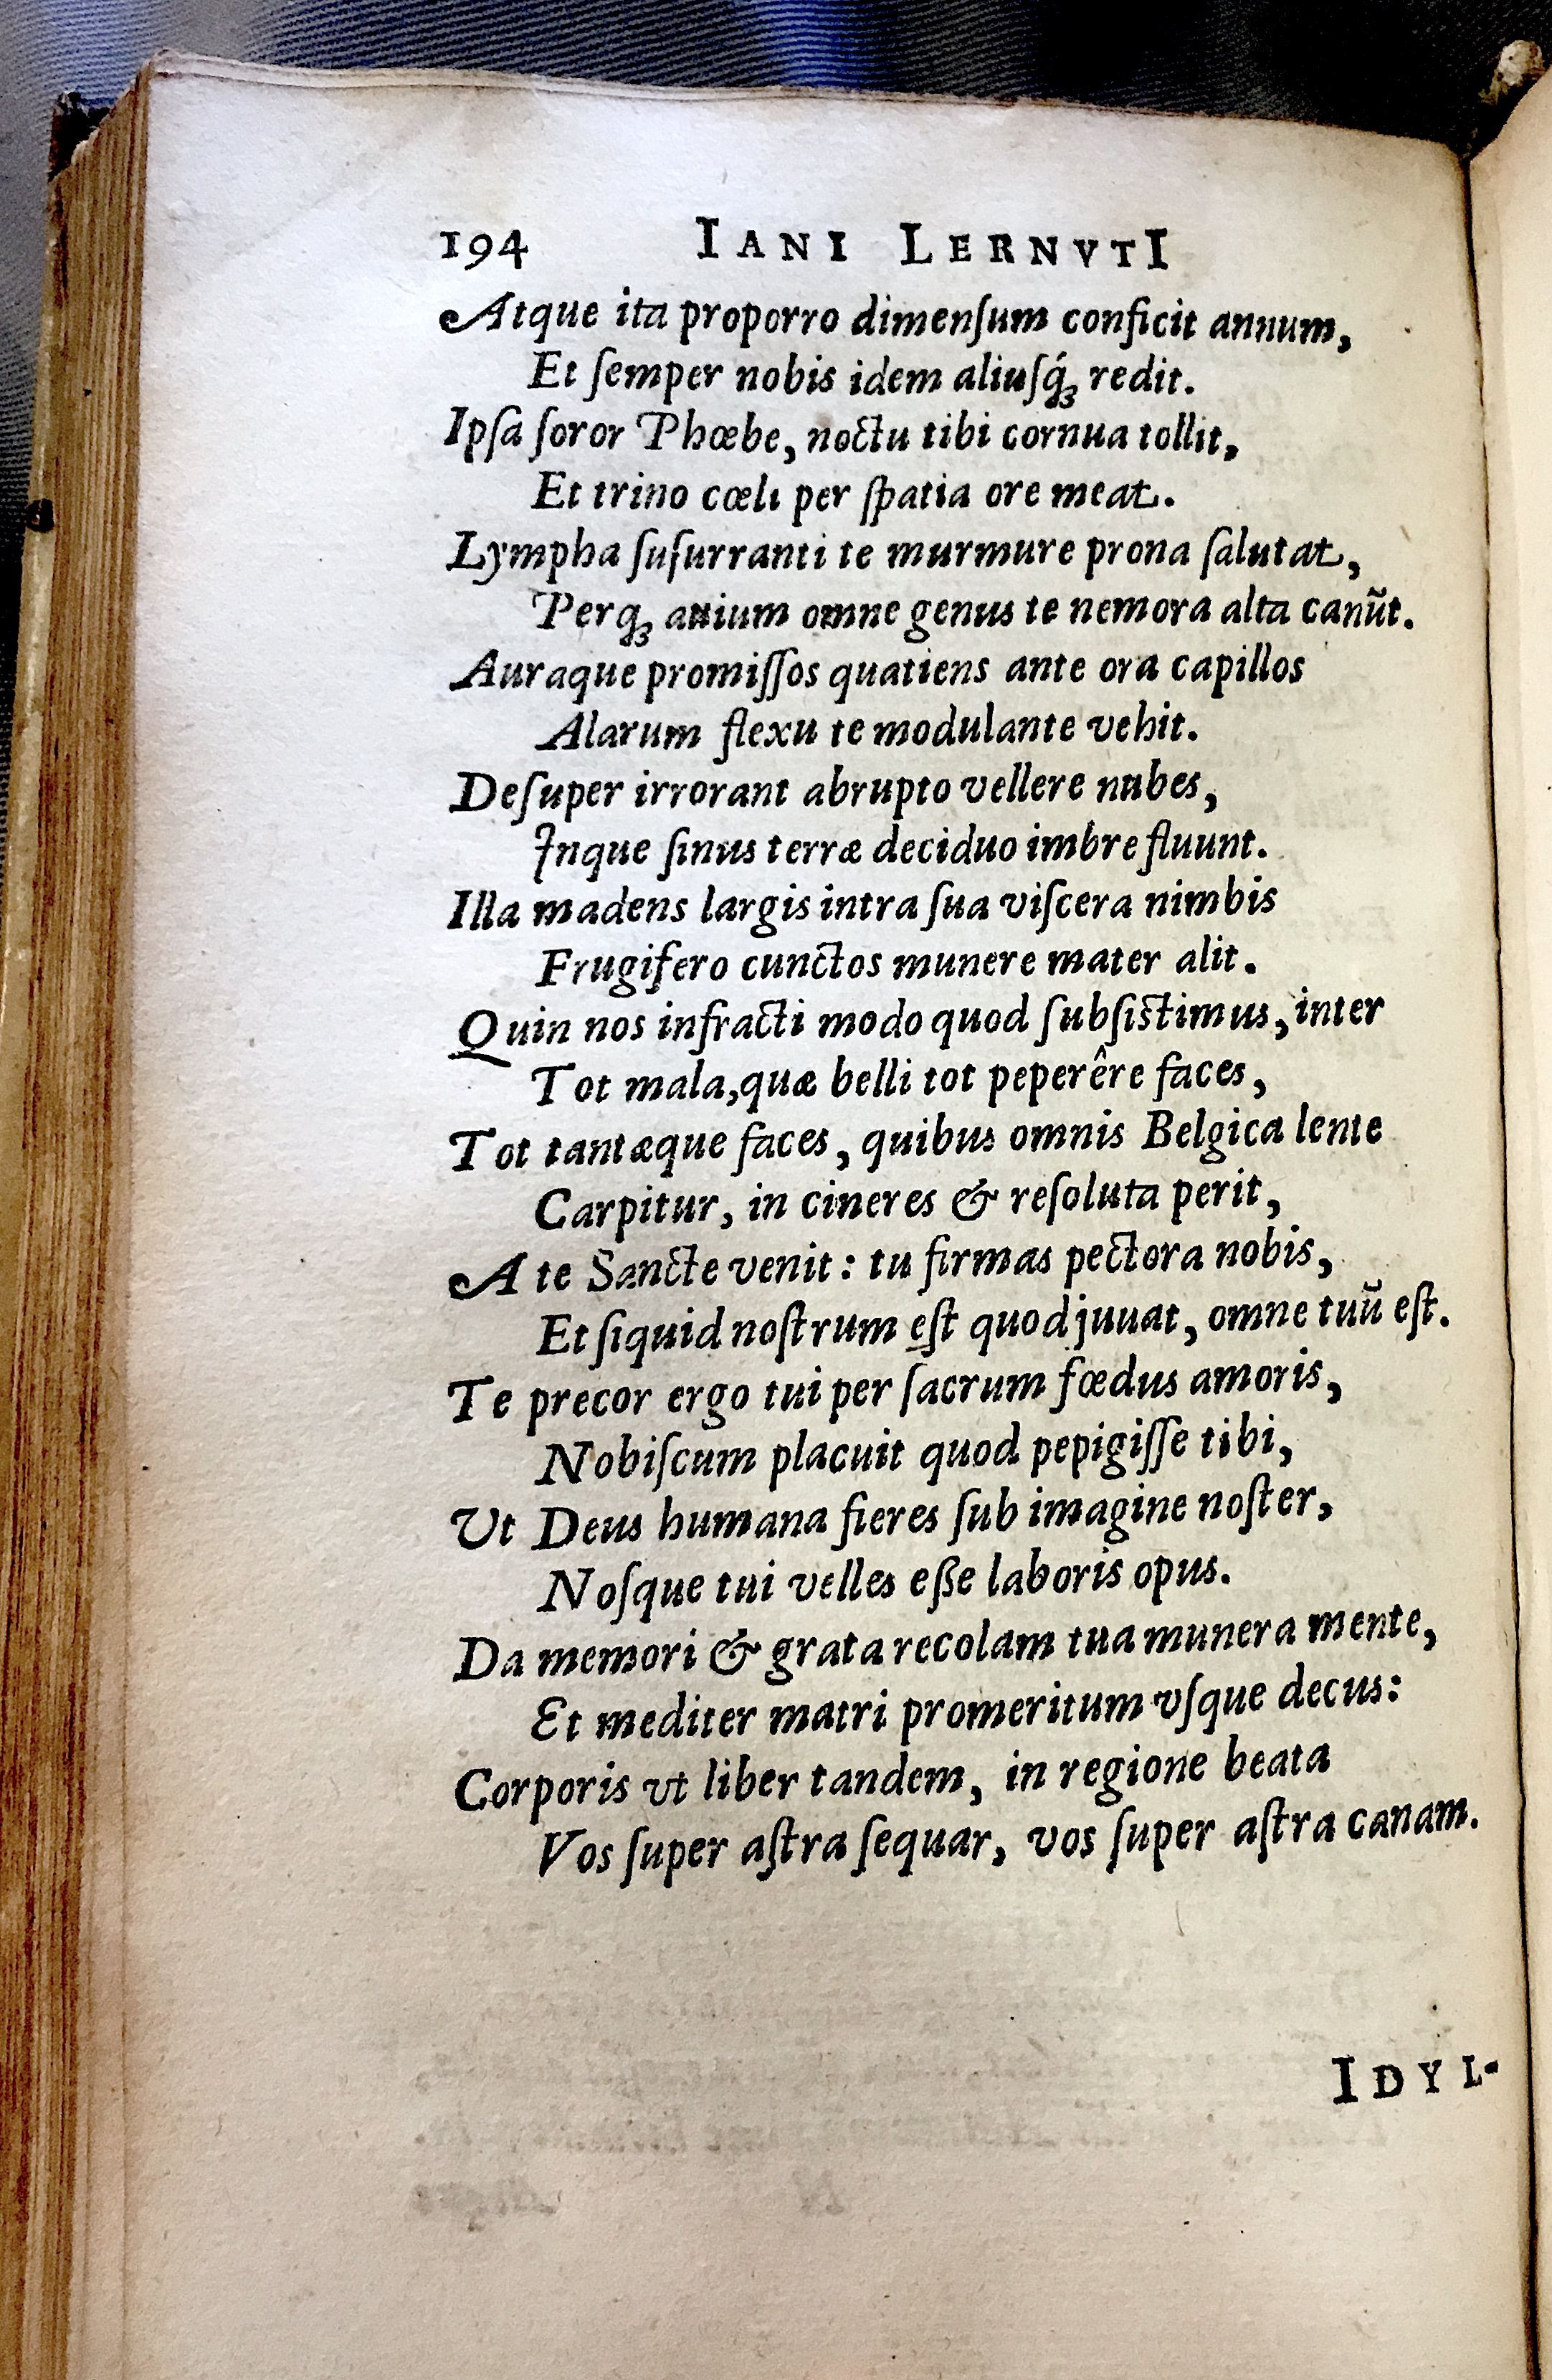 194 IANI LERNVTI
Atque ita proporro dimenſum conficit annum,
Et ſemper nobis idem aliuſq́ꝫ redit.
Ipſa ſoror Phœbe, noctu tibi cornua tollit,
Et trino cœli per ſpatia ore meat.
Lympha ſuſurranti te murmure prona ſalutat,
Perqꝫ auium omne genus te nemora alta canũt.
Auraque promiſſos quatiens ante ora capillos
Alarum flexu te modulante vehit.
Deſuper irrorant abrupto vellere nubes,
Inque ſinus terræ deciduo imbre fluunt.
Illa madens largis intra ſua viſcera nimbis
Frugifero cunctos munere mater alit.
Quin nos infracti modo quod ſubſiſtimus, inter
Tot mala, quæ belli tot peperêre faces,
Tot tantæque faces, quibus omnis Belgica lente
Carpitur, in cineres & reſoluta perit,
A te Sancte venit: tu firmas pectora nobis,
Et ſiquid noſtrum eſt quod juuat, omne tuũ eſt.
Te precor ergo tui per ſacrum fœdus amoris,
Nobiſcum placuit quod pepigiſſe tibi,
Ut Deus humana fieres ſub imagine noſter,
Noſque tui velles eße laboris opus.
Da memori & grata recolam tua munera mente,
Et mediter matri promeritum vſque decus:
Corporis vt liber tandem, in regione beata
Vos ſuper aſtra ſequar, vos ſuper aſtra canam.
IDYL-